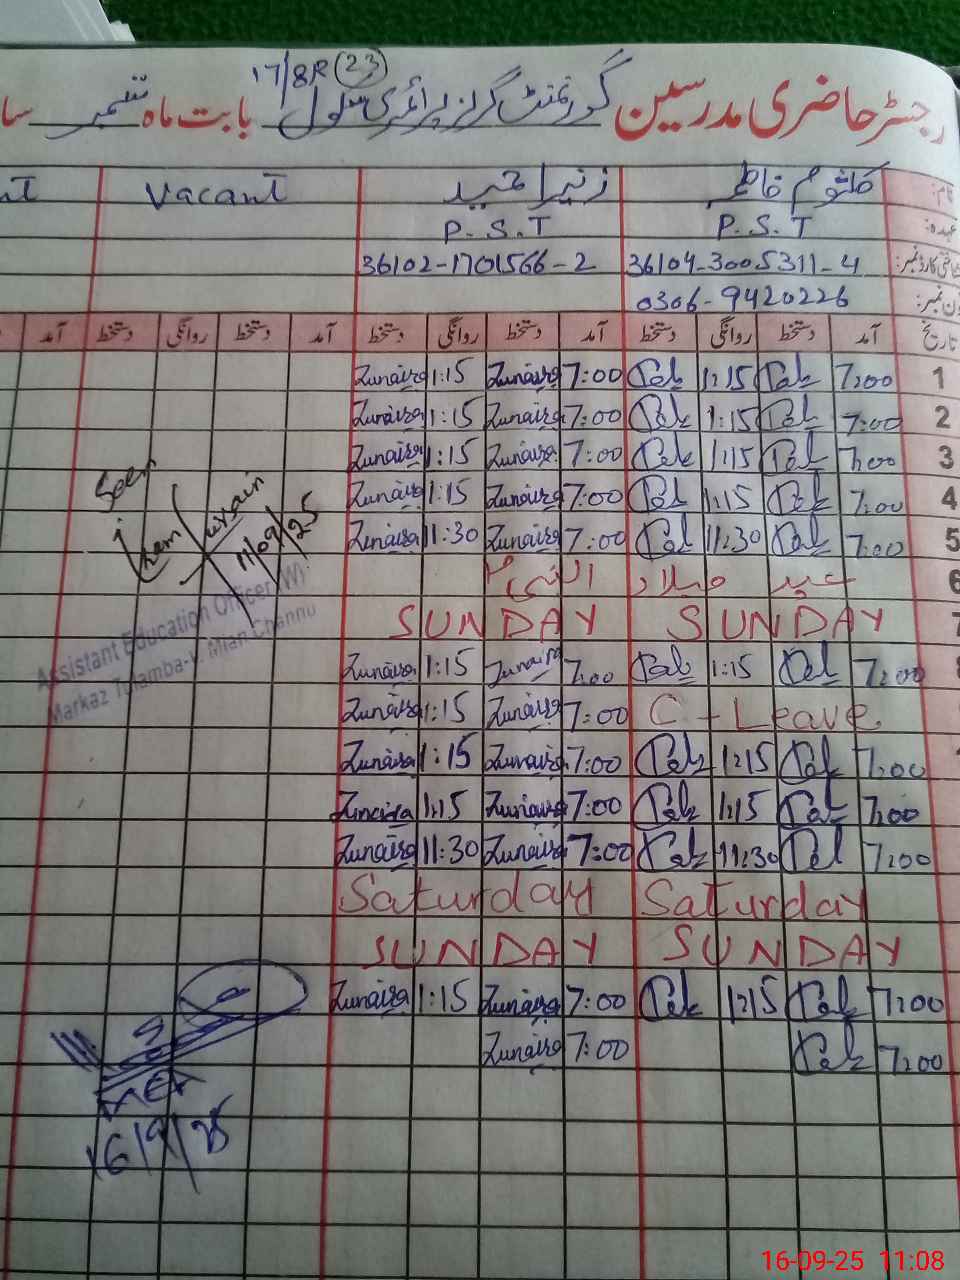 17/8R (23)
رجسٹر حاضری مدرسین گورنمنٹ گرلز پرائمری سکول بابت ماہ ستمبر سا
نام: کلثوم فاطمہ Vacant
عہدہ: P.S.T P.S.T
شناختی کارڈ نمبر: 36104-3005311-4 36102-1701566-2
فون نمبر: 0306-9420226
تاریخ آمد دستخط روانگی دستخط آمد دستخط روانگی دستخط آمد دستخط روانگی دستخط آمد
1 7:00 1:15 7:00 Zunaira 1:15 Zunaira
2 7:00 1:15 7:00 Zunaira 1:15 Zunaira
3 7:00 1:15 7:00 Zunaira 1:15 Zunaira
4 7:00 1:15 7:00 Zunaira 1:15 Zunaira
5 7:00 11:30 7:00 Zunaira 11:30 Zunaira
6 عید میلاد النبی
7 SUNDAY SUNDAY
7:00 1:15 7:00 Zunaira 1:15 Zunaira
C-Leave 7:00 Zunaira 1:15 Zunaira
7:00 1:15 7:00 Zunaira 1:15 Zunaira
7:00 1:15 7:00 Zunaira 1:15 Zunaira
7:00 11:30 7:00 Zunaira 11:30 Zunaira
Saturday Saturday
SUNDAY SUNDAY
7:00 1:15 7:00 Zunaira 1:15 Zunaira
7:00 7:00 Zunaira
Seen
11/09/25
Assistant Education Officer (W)
Markaz Tulamba-I, Mian Channu
16/9/25
16-09-25 11:08